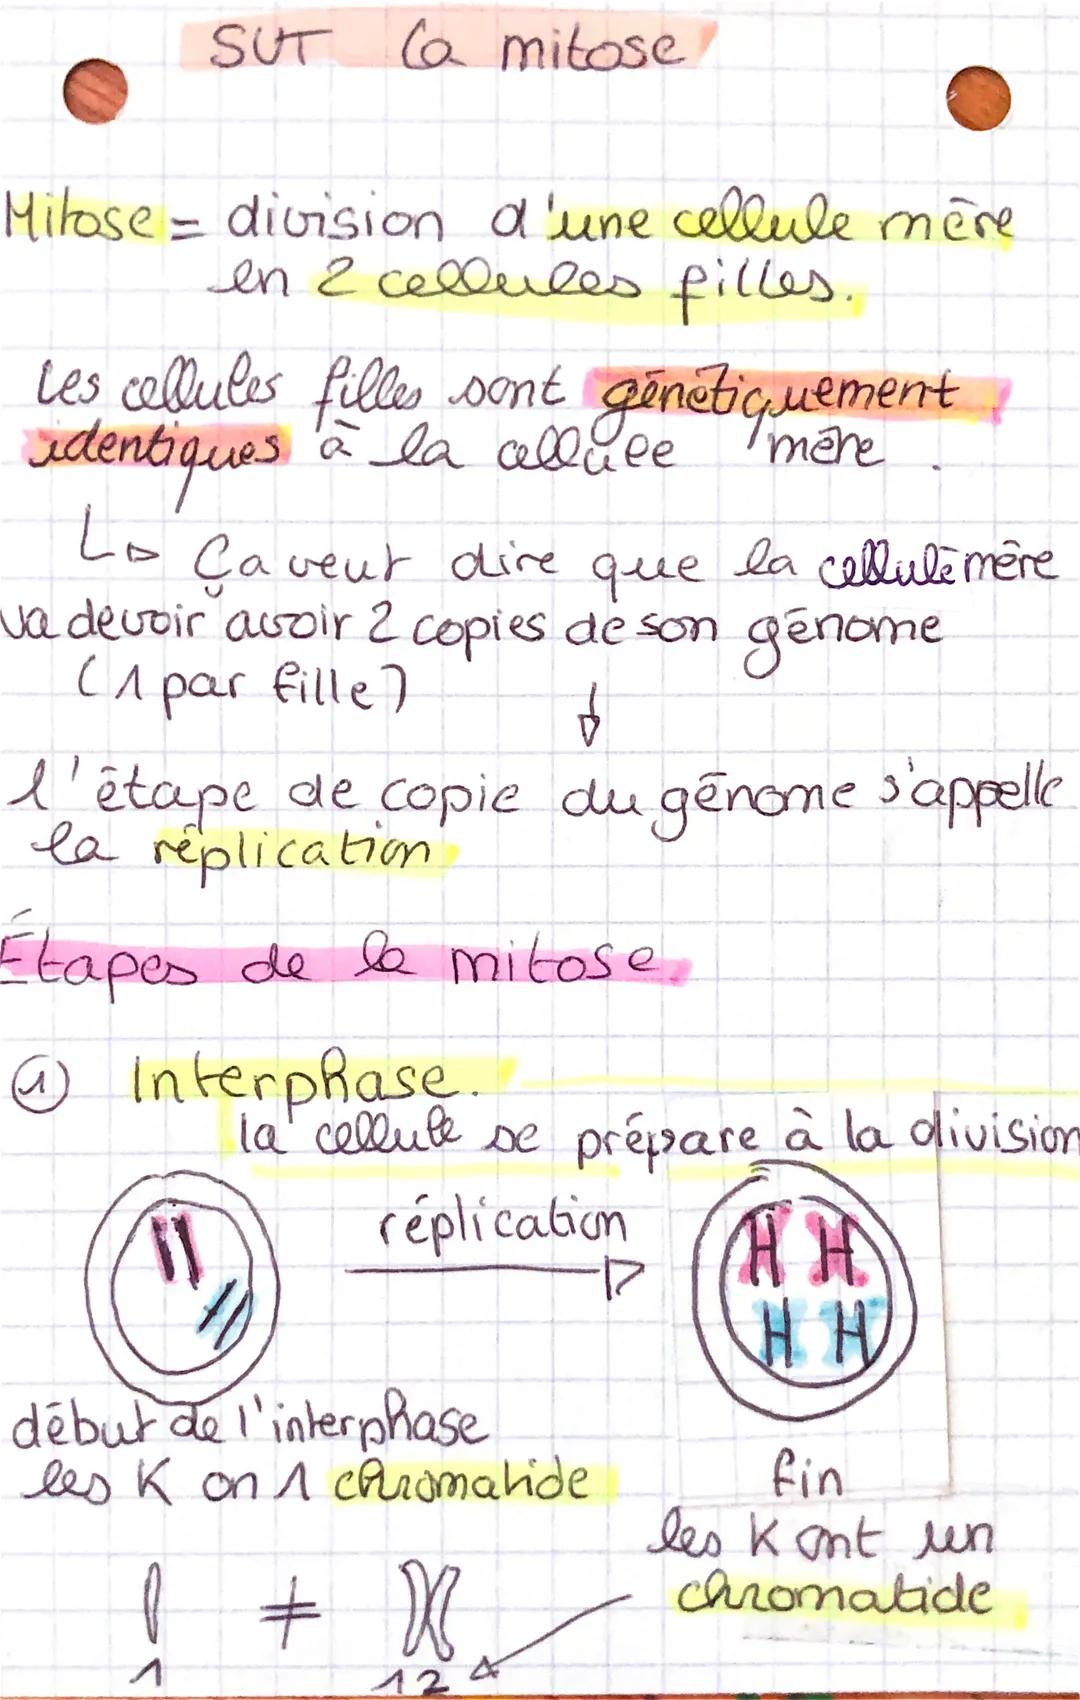 SVT la mitose
Mitose = division d'une cellule mère
en 2 cellules filles.
les cellules filles sont génétiquement
identiques à la cellule mère.
↳ Ça veut dire que la cellule mère
va devoir avoir 2 copies de son génome
(1 par fille)
↓
l'étape de copie du génome s'appelle
la réplication
Étapes de la mitose
① Interphase.
la cellule se prépare à la division
réplication
début de l'interphase
les K on 1 chromatide
fin
les K ont un
chromatide
≠
1
12